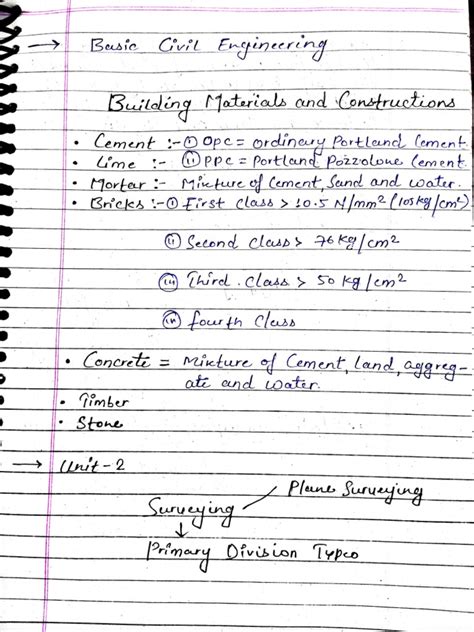 → Basic Civil Engineering
Building Materials and Constructions
• Cement :- (i) OPC = ordinary Portland Cement
• Lime :- (ii) PPC = Portland Pozzolone Cement.
• Mortar :- Mixture of Cement, Sand and water.
• Bricks :- (i) First class > 10.5 N/mm² (105kg/cm²)
(ii) Second class > 76 kg/cm²
(iii) Third. Class > 50 kg/cm²
(iv) fourth Class
• Concrete = Mixture of Cement, land, aggreg-
ate and water.
• Timber
• Stone
→ Unit - 2
Plane Surveying
Surveying
↓
Primary Division Types